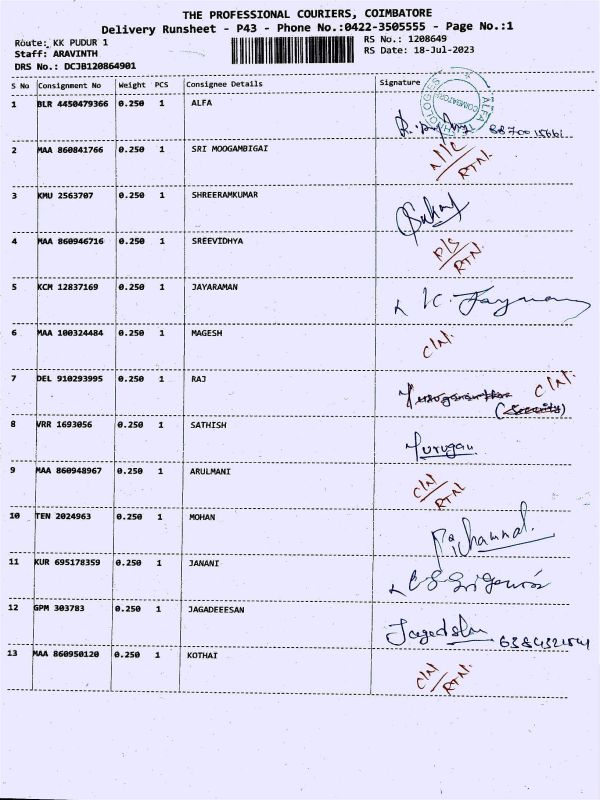 THE PROFESSIONAL COURIERS, COIMBATORE
Delivery Runsheet - P43 - Phone No.:0422-3505555 - Page No.:1
Route: KK PUDUR 1 RS No.: 1208649
Staff: ARAVINTH RS Date: 18-Jul-2023
DRS No.: DCJB120864901
S No Consignment No Weight PCS Consignee Details Signature
1 BLR 4450479366 0.250 1 ALFA
ALFA COIMBATORE
2 MAA 860841766 0.250 1 SRI MOOGAMBIGAI
RTN
3 KMU 2563707 0.250 1 SHREERAMKUMAR
4 MAA 860946716 0.250 1 SREEVIDHYA
RTN.
5 KCM 12837169 0.250 1 JAYARAMAN
6 MAA 100324484 0.250 1 MAGESH
C/N.
7 DEL 910293995 0.250 1 RAJ C/N.
(Security)
8 VRR 1693056 0.250 1 SATHISH
Murugan
9 MAA 860948967 0.250 1 ARULMANI
C/N
RTN
10 TEN 2024963 0.250 1 MOHAN
11 KUR 695178359 0.250 1 JANANI
12 GPM 303783 0.250 1 JAGADEEESAN
13 MAA 860950120 0.250 1 KOTHAI
C/N
RTN.